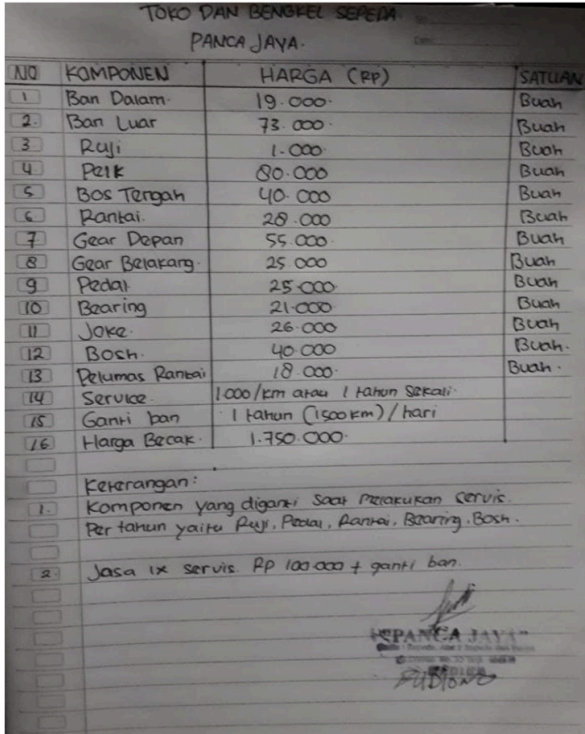 TOKO DAN BENGKEL SEPEDA
PANCA JAYA.
NO KOMPONEN HARGA (RP) SATUAN
1 Ban Dalam. 19.000. Buah
2. Ban Luar 73.000. Buah
3 Ruji 1.000. Buah
4 Pelk 80.000 Buah
5 Bos Tengah 40.000 Buah
6 Rantai. 28.000 Buah
7 Gear Depan 55.000 Buah
8 Gear Belakang. 25.000 Buah
9 Pedal 25.000. Buah
10 Bearing 21.000 Buah
11 Joke. 26.000 Buah
12 Bosh. 40.000 Buah.
13 Pelumas Rantai 18.000. Buah.
14 Service 1.000/km atau 1 tahun sekali.
15 Ganti ban 1 tahun (1500 km)/hari
16 Harga Becak. 1.750.000.
Keterangan:
1. Komponen yang diganti saat melakukan servis
Per tahun yaitu Ruji, Pedal, Rantai, Bearing, Bosh.
2. Jasa 1x servis RP 100.000 + ganti ban.
"PANCA JAYA"
SUDIONO